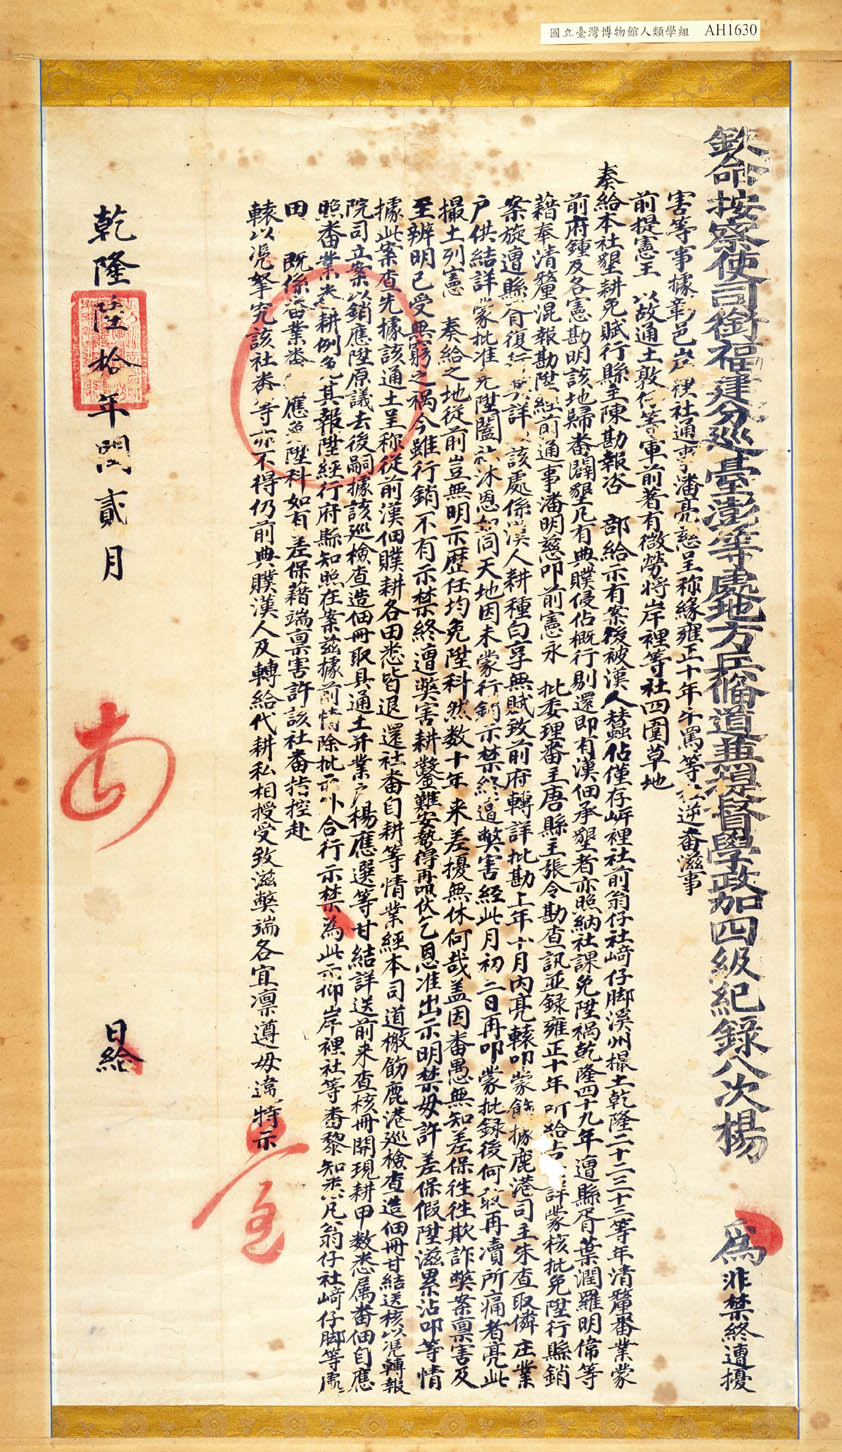 國立臺灣博物館人類學組 AH1630
欽命按察使司銜福建分巡臺澎等處地方兵備道兼提督學政加四級紀錄八次楊 為非禁終遭擾
害等事據彰邑岸裡社通事潘亮慈呈称緣雍正十年 等社逆番滋事
前提憲王 以故通土敦仔等軍前著有微勞將岸裡等社四圍草地
奏給本社墾耕免賦行縣主陳勘報咨 部給示有案後被漢人蠶佔僅存岸裡社前翁仔社﨑仔脚溪州撮土乾隆二十二三十三等年清釐番業蒙
前府鍾及各憲勘明該地歸番闢墾凡有典贌侵佔概行剔還即有漢佃承墾者亦照納社課免陞禍乾隆四十九年遭縣胥葉潤羅明偹等
藉奉清釐混報勘陞經前通事潘明慈叩前憲永 批委理番主唐縣主張令勘查訊並録雍正十年 詳蒙核批免陞行縣銷
案旋遭縣胥復 詳 該處係漢人耕種匄享無賦致前府轉詳批勘上年 月內亮轅叩蒙飭據鹿港司主朱查取僯庄業
户供結詳蒙批准免陞闔社沐恩如同天地因未蒙行銷示禁終遭弊害經此月初二日再叩蒙批録後何敢再瀆所痛者亮此
撮土列憲 奏給之地從前豈無明示歷任均免陞科然数十年来差擾無休何哉盖因番愚無知差保徃徃欺詐弊案禀害及
至辨明已受無窮之禍今雖行銷不有示禁終遭弊害耕鑿難安勢得再叩伏乞恩准出示明禁毋許差保假陞滋累沾叩等情
據此案查先據該通土呈称從前漢佃贌耕各田悉皆退還社番自耕等情業經本司道檄飭鹿港巡檢查造佃冊甘結送核以凭轉報
院司立案以銷應陞原議去後嗣據該巡檢查造佃冊取具通土并業户楊應選等甘結詳送前来查核冊開現耕甲数悉属番佃自應
照番業 耕例免其報陞經行府縣知照在案兹據前情除批示外合行示禁為此示仰岸裡社等番黎知悉凡翁仔社﨑仔脚等處
田 既係番業 應免陞科如有差保藉端禀害許該社番指控赴
轅以凭拏究該社番等亦不得仍前典贌漢人及轉給代耕私相授受致滋弊端各宜凛遵毋違特示
乾隆陸拾年閏貳月 日給